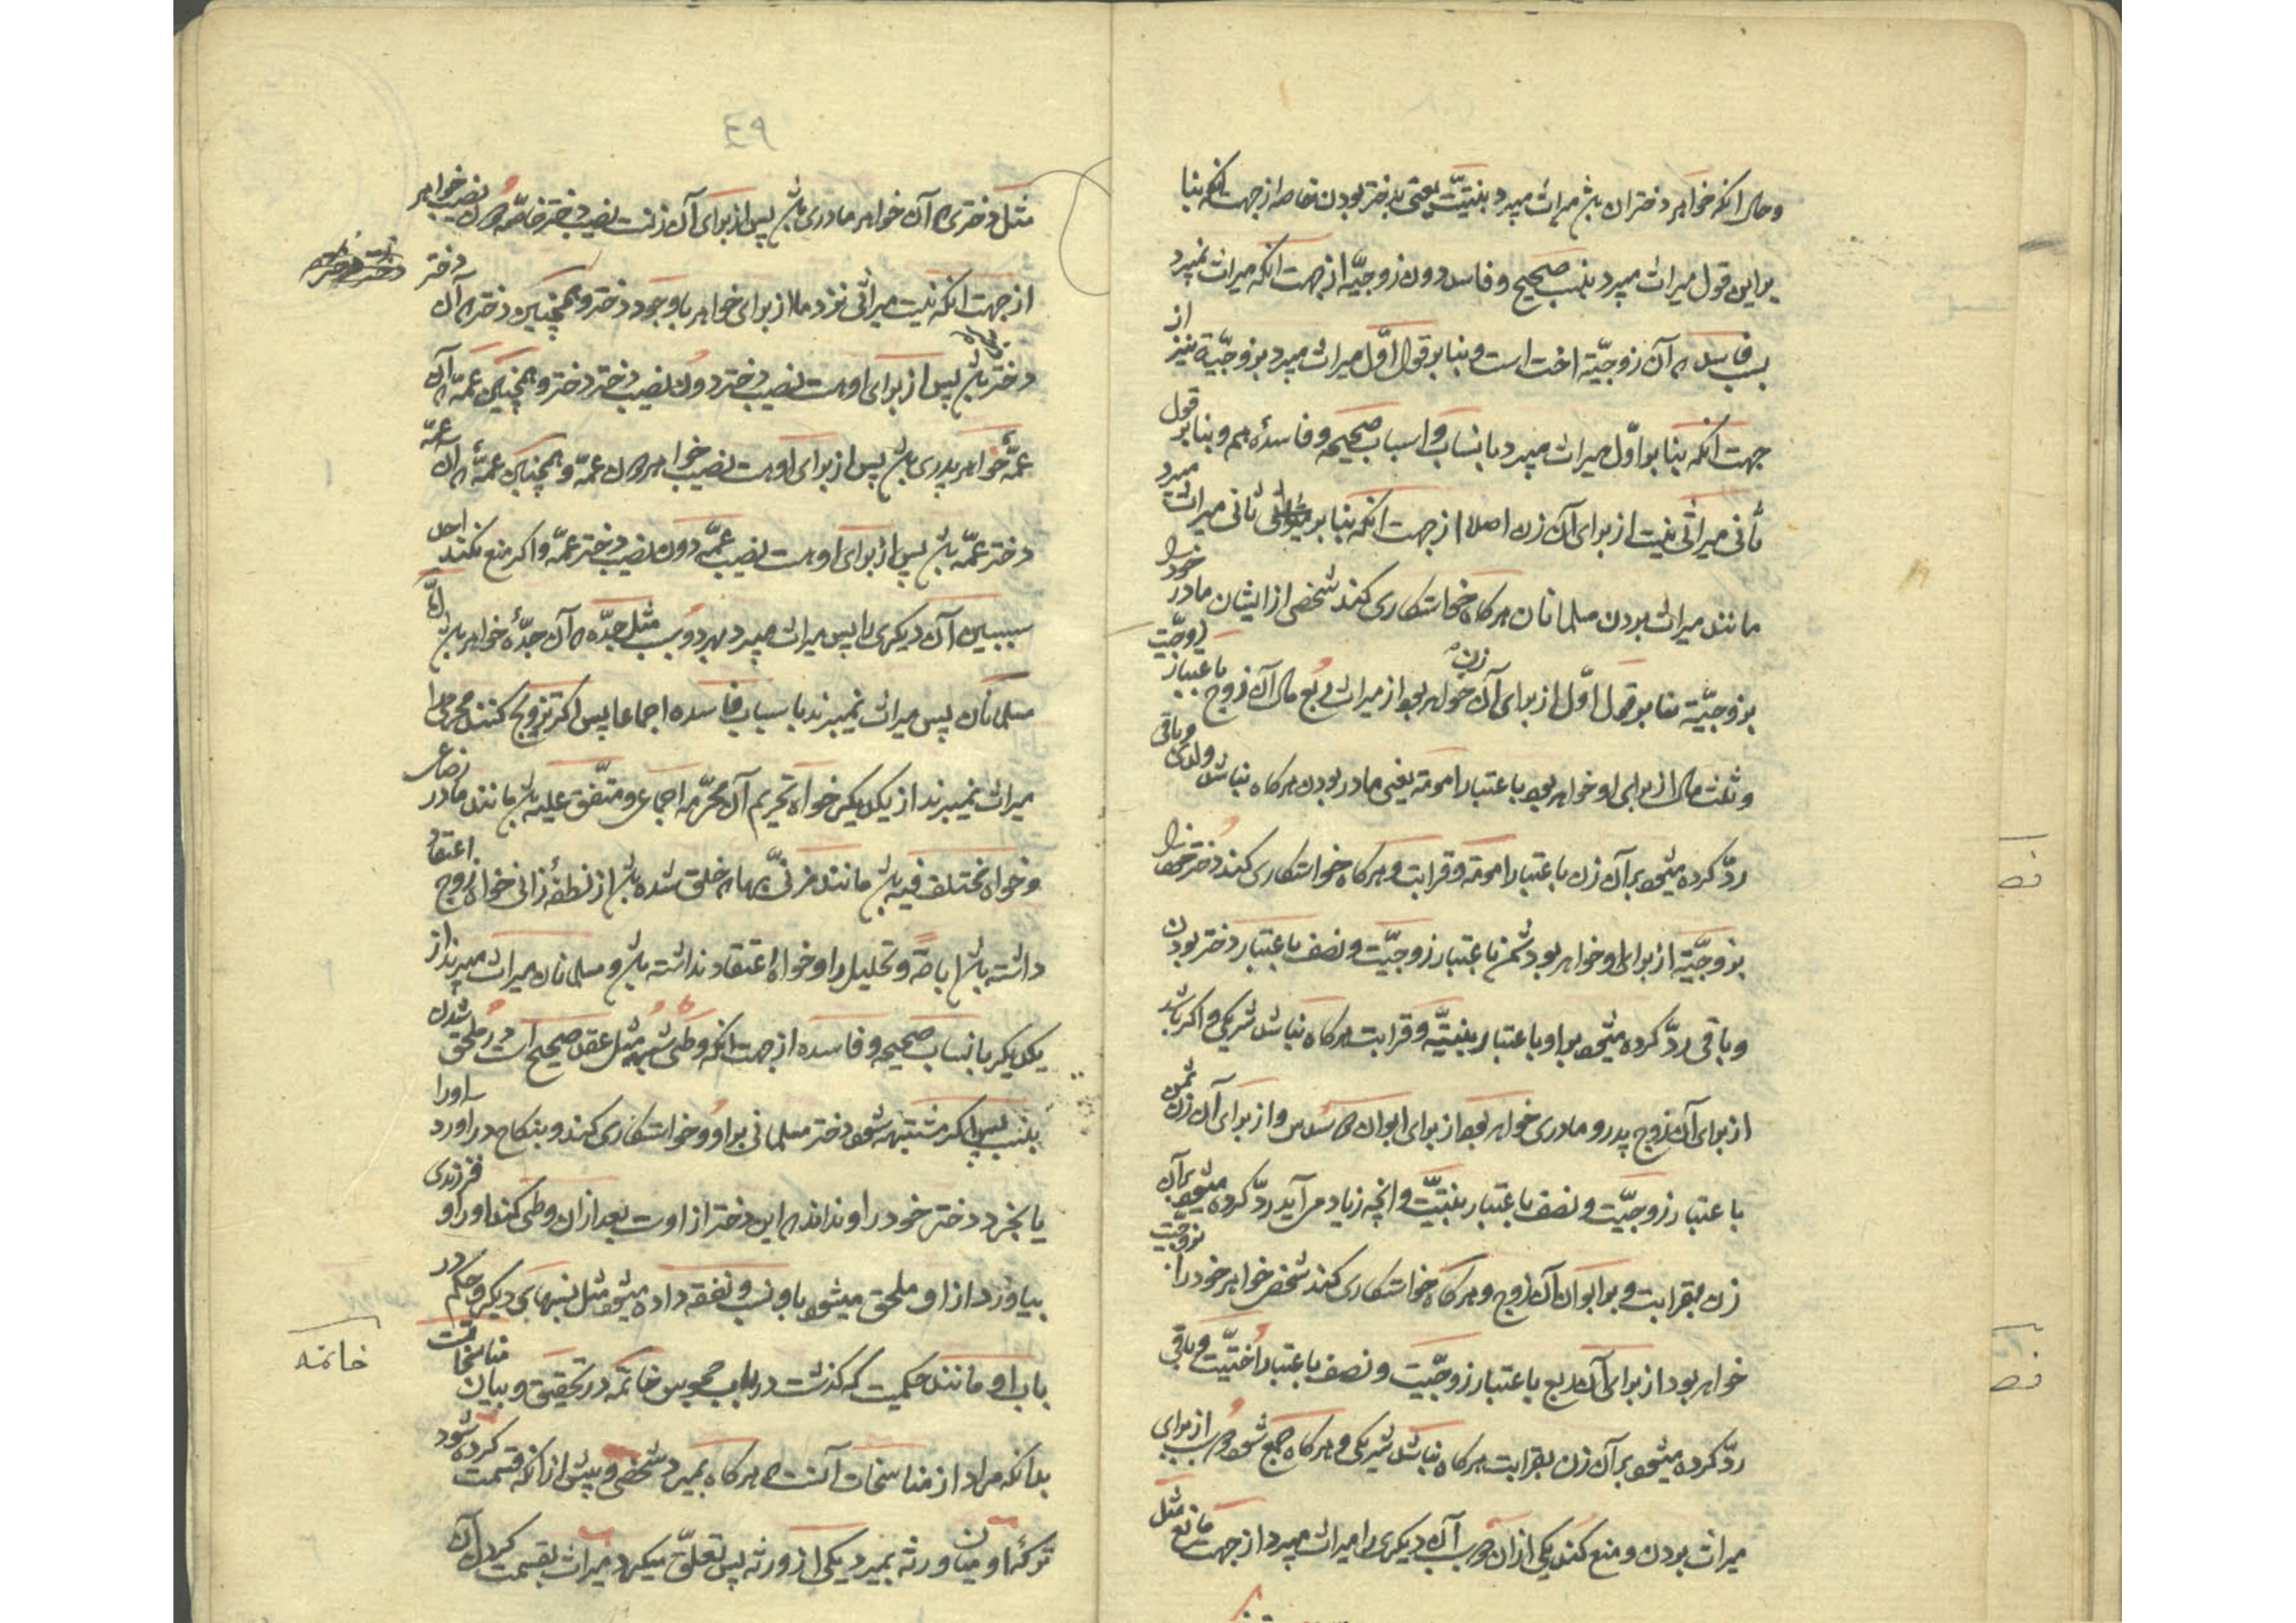 وحال انکه خواهر دختران باش میراث میبرد بنتیّت یعنی بدختر بودن خاصه از جهت انکه بنا
بر این قول میراث میبرد بنسب صحیح و فاسد دون زوجیّه از جهت انکه میراث نمیبرد
بسبب فاسد که آن زوجیّة اخت است و بنا بر قول اوّل میراث میبرد بزوجیّة نیز از
جهت انکه بنا بر اوّل میراث میبرد بانساب و اسباب صحیحه و فاسده هم و بنا بر قول
ثانی میراثی نیست از برای آن زن اصلا از جهت انکه بنا بر ثانی میراث میبرد
مانند میراث بودن مسلمانان هرکاه خواستکاری کند شخصی از ایشان مادر خود را
بزوجیّة بنا بر قول اوّل از برای آن زن خواهر بود از میراث ربع مال آن زوج باعتبار زوجیّت
و ثلث مال از برای او خواهر بود باعتبار امومة یعنی مادر بودن هرکاه نباشد ولدی و باقی
ردّ کرده میشود بر آن زن باعتبار امومة و قرابت و هرکاه خواستکاری کند دختر خود را
بزوجیّة از برای او خواهر بود ثمن باعتبار زوجیّت و نصف باعتبار دختر بودن
و باقی ردّ کرده میشود بر او باعتبار بنتیّة و قرابت هرکاه نباشد شریکی و اکر باشد
از برای آن زوج پدر و مادری خواهر بود از برای ابوان سدس و از برای آن زن ثمن
باعتبار زوجیّت و نصف باعتبار بنتیّت و انچه زیاد می آید ردّ کرده میشود بر آن
زن بقرابت و بر ابوان آن زوج و هرکاه خواستکاری کند شخصی خواهر خود را بزوجیّت
خواهر بود از برای آن ربع باعتبار زوجیّت و نصف باعتبار اختیّت و باقی
ردّ کرده میشود بر آن زن بقرابت هرکاه نباشد شریکی و هرکاه جمع شود دو سبب از برای
میراث بودن و منع کند یکی از آن دو سبب آن دیکری را میراث میبرد از جهت مانع مثل
٤٩
مثل دختری که آن خواهر مادری باش پس از برای آن زنست نصیب دختر خاصّه دون نصیب خواهر
از جهت انکه نیست میراثی نزد ما از برای خواهر با وجود دختر و همچنین دختر که آن دختر
دختر باش پس از برای اوست نصیب دختر دون نصیب دختر دختر و همچنین عمّه که آن
عمّه خواهر پدری باش پس از برای اوست نصیب خواهر دون عمّه و همچنین عمّه که آن عمّه
دختر عمّه باش پس از برای اوست نصیب عمّه دون نصیب دختر عمّه و اکر منع نکند احد
سببین آن دیکری را پس میراث میبرد بهر دو سبب مثل جدّه که آن جدّه خواهر باش امّا
مسلمانان پس میراث نمیبرند باسباب فاسده اجماعا پس اکر تزویج کنند محرمی را
میراث نمیبرند از یکدیکر خواه تحریم آن محرّمه اجماعی و متّفق علیه باش مانند مادر رضاعی
و خواه مختلف فیه باش مانند مزنیّ بها که خلق شده باش از نطفه زانی خواه زوج اعتقاد
داشته باش اباحة و تحلیل را و خواه اعتقاد نداشته باش و مسلمانان میراث میبرند از
یکدیکر بانساب صحیحه و فاسده از جهت انکه وطی شبهه مثل عقد صحیح است در ملحق شدن
بنسب پس اکر مشتبه شود دختر مسلمانی بر او و خواستکاری کند و بنکاح در اورد او را
یا بخرد دختر خود را و نداند که این دختر از اوست بعد از ان وطی کند او را و فرزندی
بیاورد از او ملحق میشود باو نسب و نفقه داده میشود مثل نسبهای دیکر و حکم در
باب او مانند حکمیست که کذشت در باب مجوس خاتمه در تحقیق و بیان مناسخات
بدانکه مراد از مناسخات آنست که هرکاه بمیرد شخصی و پیش از انکه قسمت کرده شود
ترکهٔ او میان ورثه بمیرد یکی از ورثه پس تعلّق میکیرد میراث بقسمت کردن آن
خاتمه